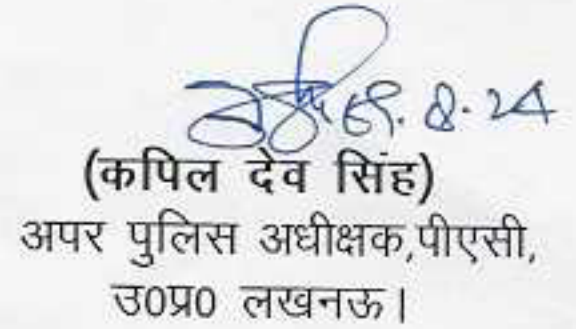 (कपिल देव सिंह)
अपर पुलिस अधीक्षक,पीएसी,
उ0प्र0 लखनऊ।